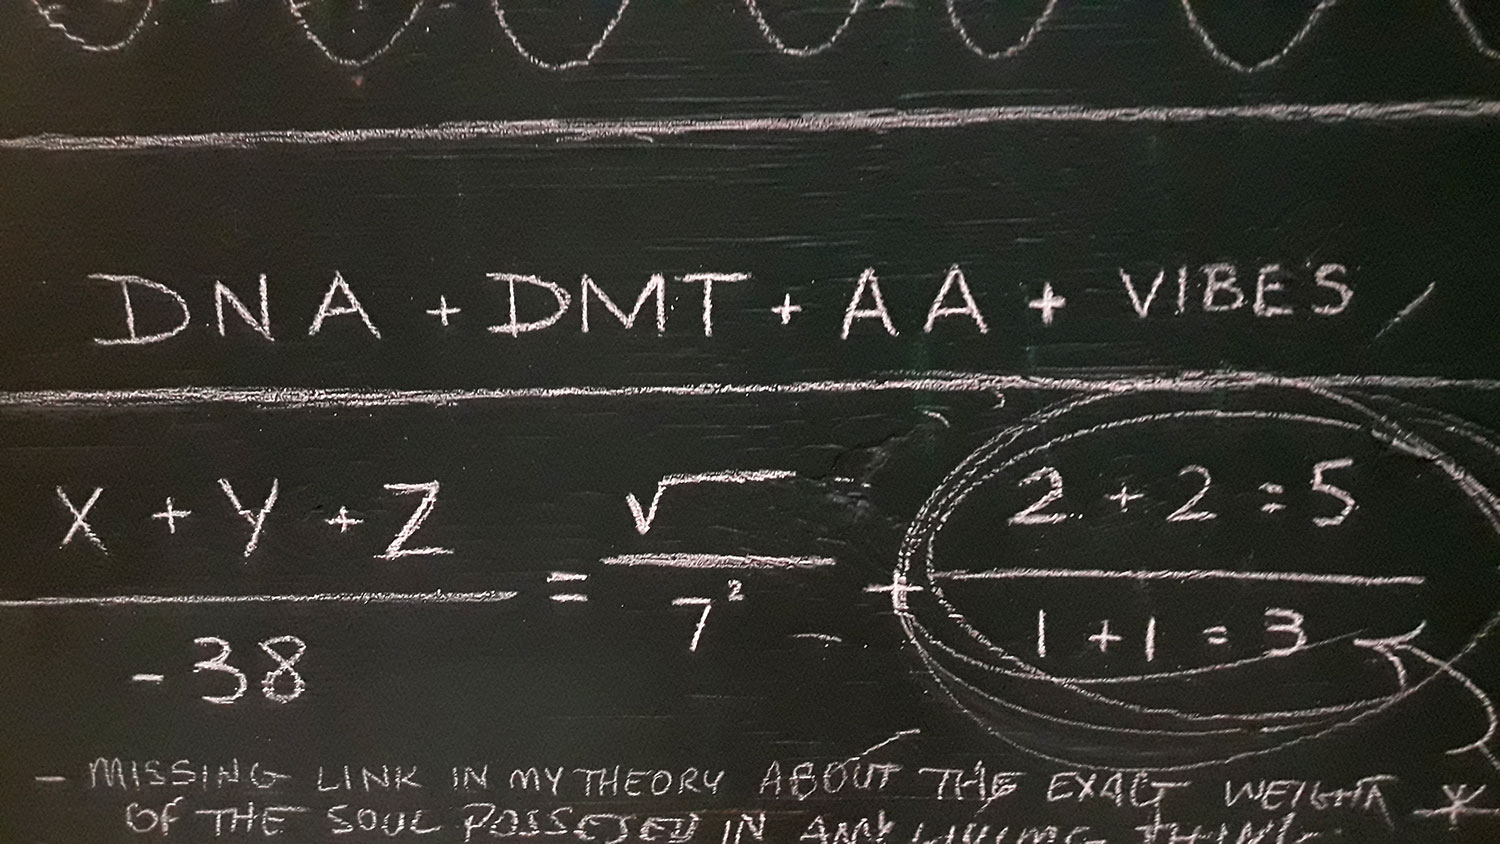 DNA + DMT + AA + VIBES
X + Y + Z
-38
=
√
7²
+
2 + 2 = 5
1 + 1 = 3
- MISSING LINK IN MY THEORY ABOUT THE EXACT WEIGHT *
OF THE SOUL POSSESED IN ANY LIVING THING